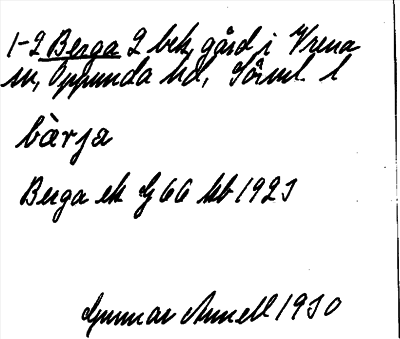 1-2 Berga 2 bek, gård i Vrena
sn, Oppunda hd, Sörml. l
bàrja
Berga ek G 66 kb 1925
Gunnar Annell 1930